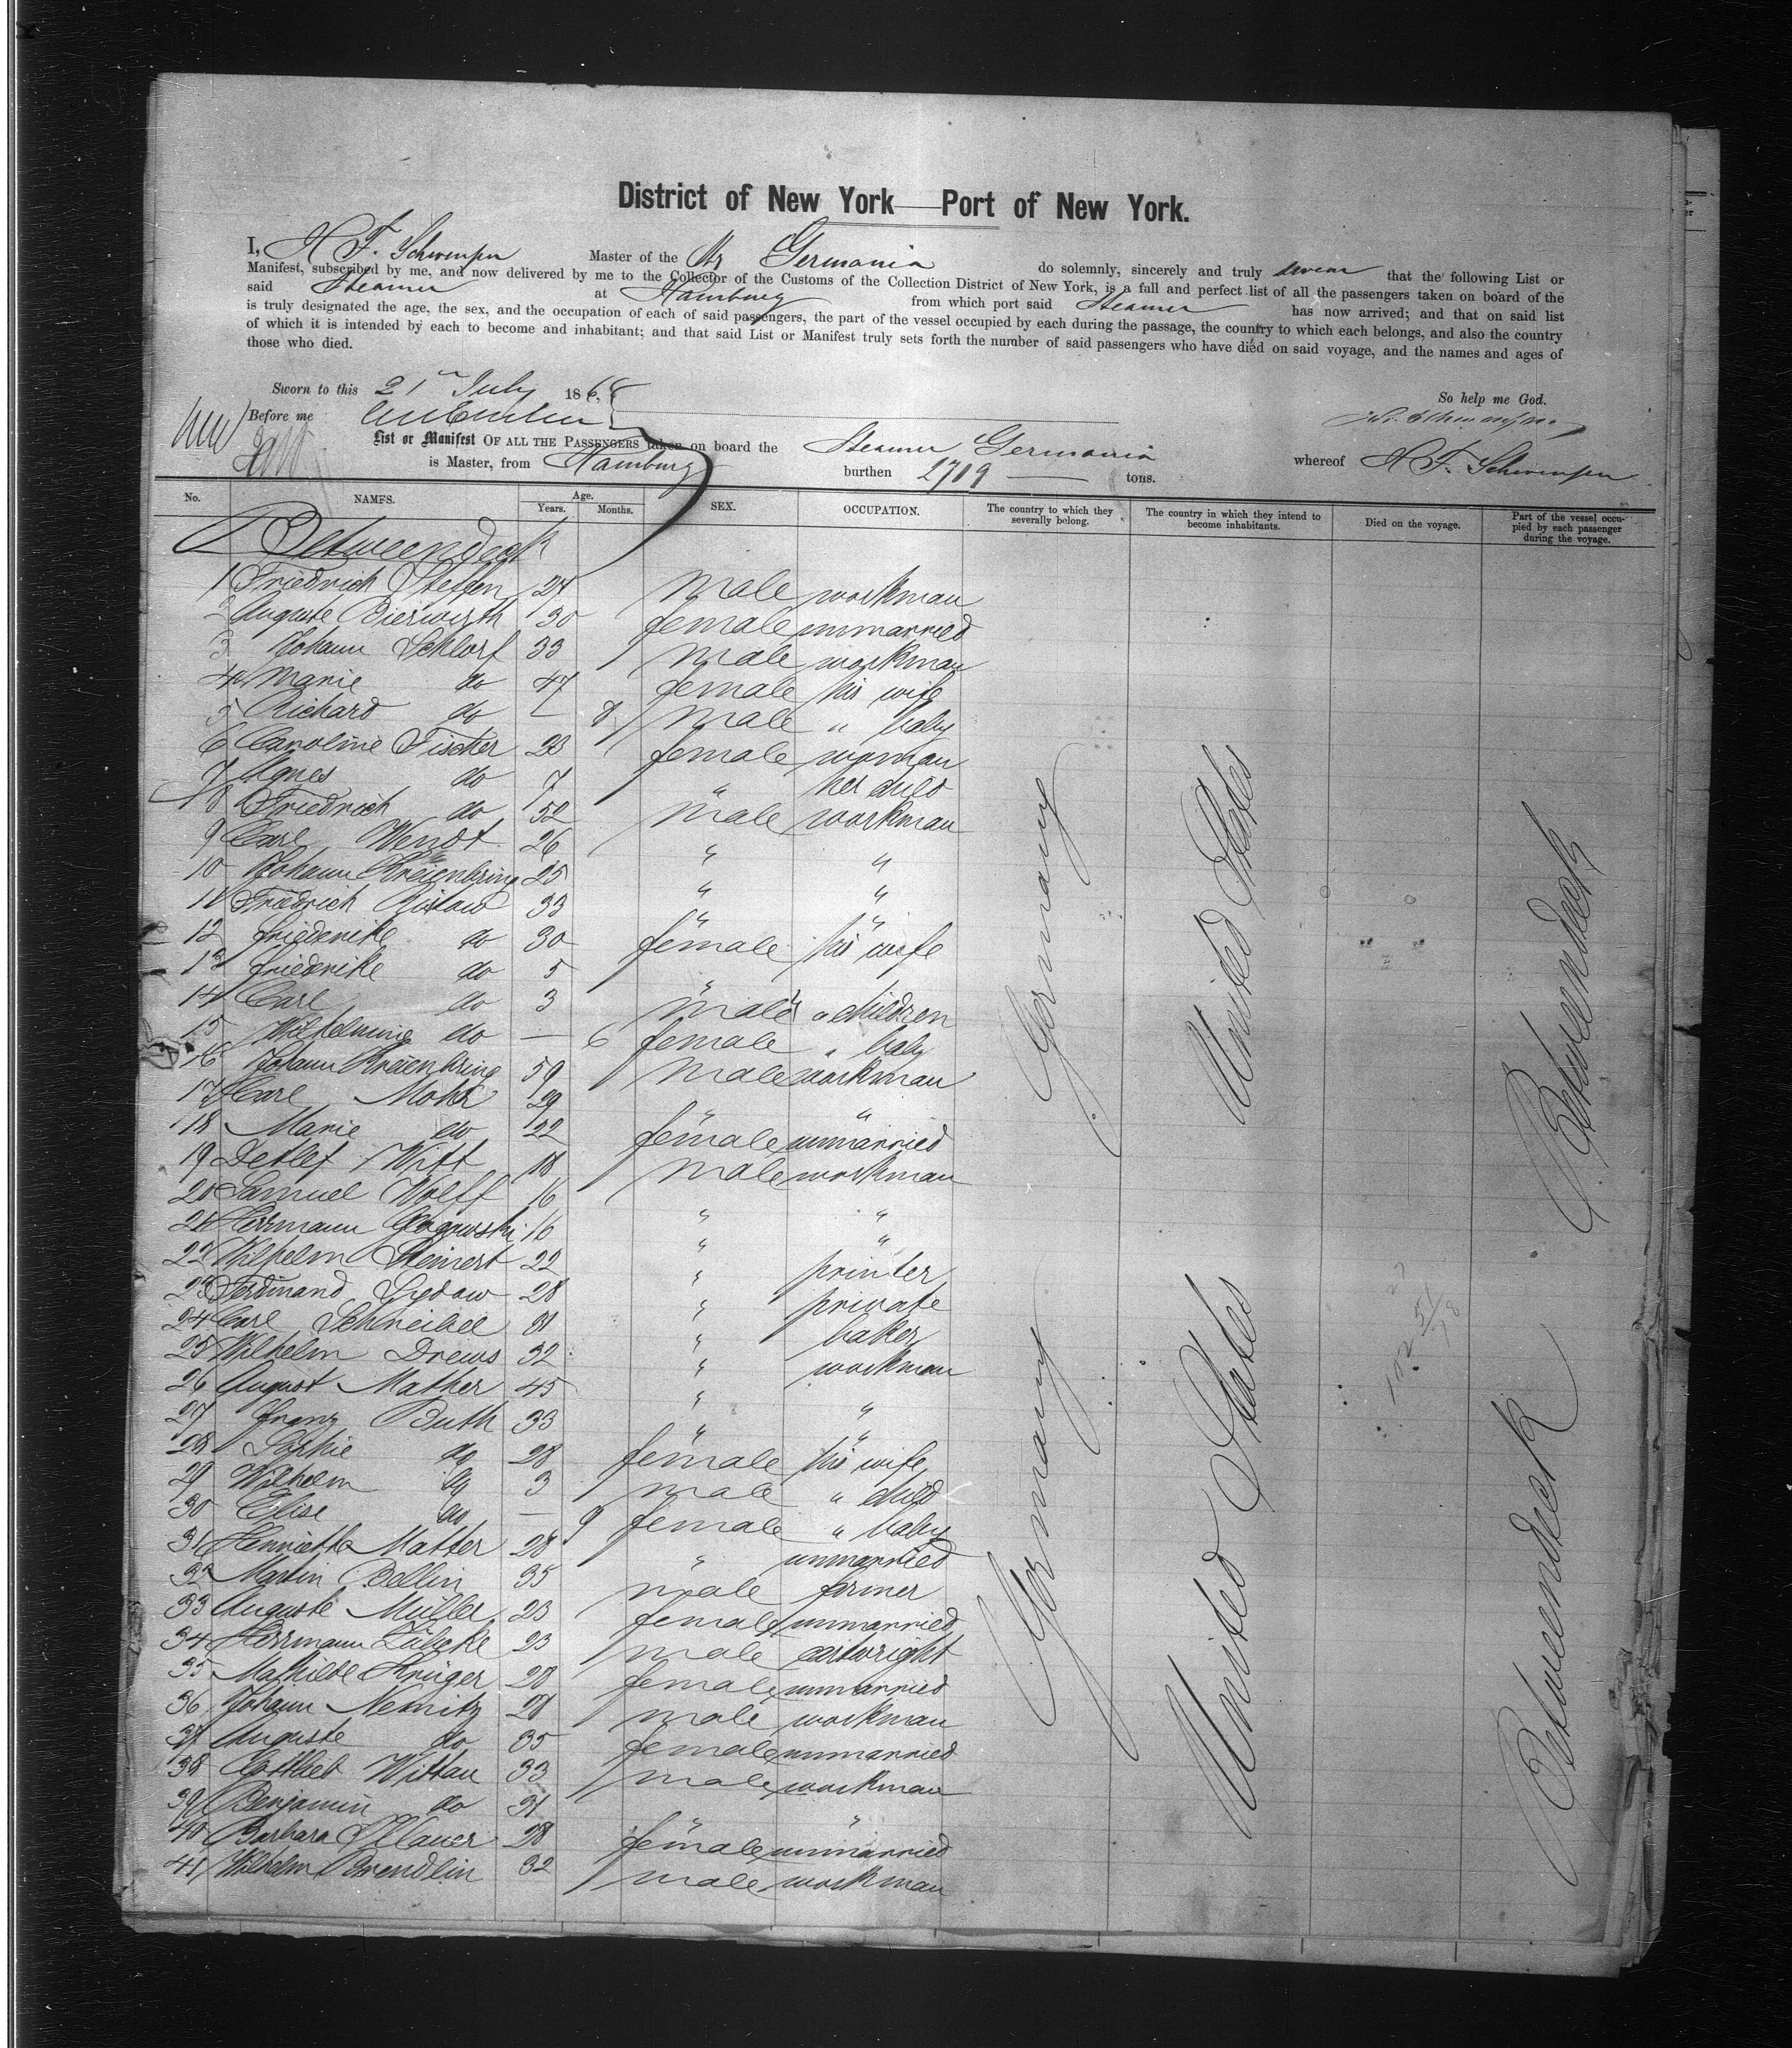 District of New York—Port of New York.
I, H. F. Schwensen Master of the Str Germania do solemnly, sincerely and truly swear that the following List or
Manifest, subscribed by me, and now delivered by me to the Collector of the Customs of the Collection District of New York, is a full and perfect list of all the passengers taken on board of the
said Steamer at Hamburg from which port said Steamer has now arrived; and that on said list
is truly designated the age, the sex, and the occupation of each of said passengers, the part of the vessel occupied by each during the passage, the country to which each belongs, and also the country
of which it is intended by each to become and inhabitant; and that said List or Manifest truly sets forth the number of said passengers who have died on said voyage, and the names and ages of
those who died.
Sworn to this 21st July 1868, So help me God.
Before me
List or Manifest OF ALL THE PASSENGERS taken on board the Steamer Germania whereof H. F. Schwensen
is Master, from Hamburg burthen 2709 tons.
No. NAMES. Age. Years. Months. SEX. OCCUPATION. The country to which they severally belong. The country in which they intend to become inhabitants. Died on the voyage. Part of the vessel occupied by each passenger during the voyage.
Betweendeck
1 Friedrich Steffen 24 male workman
2 Auguste Bierwirth 30 female unmarried
3 Johann Schlorf 33 male workman
4 Marie do 47 female his wife
5 Richard do — 8 male " baby
6 Caroline Fischer 23 female woman
7 Agnes do 7 " her child
8 Friedrich do 52 male workman
9 Carl Wendt 26 " "
10 Johann Kreienbring 25 " "
11 Friedrich Ristow 33 " "
12 Friederike do 30 female his wife
13 Friederike do 5 "
14 Carl do 3 male " children
15 Wilhelmine do — 6 female " baby
16 Johann Kreienbring 59 male workman
17 Carl Mohr 29 " "
18 Marie do 22 female unmarried
19 Detlef Witt 18 male workman
20 Samuel Wolff 16 " "
21 Herrmann 16 " "
22 Wilhelm Steinert 22 " printer
23 Ferdinand Sydow 28 " private
24 Carl Schneibel 31 " baker
25 Wilhelm Drews 32 " workman
26 August Mather 45 " "
27 Franz Buth 33 " "
28 Sophie do 28 female his wife
29 Wilhelm do 3 male " child
30 Elise do — 9 female " baby
31 Henriette Matter 28 " unmarried
32 Martin Bellin 35 male farmer
33 Auguste Müller 23 female unmarried
34 Herrmann Lübcke 23 male cartwright
35 Mathilde Krüger 28 female unmarried
36 Johann Nemitz 28 male workman
37 Auguste do 35 female unmarried
38 Gottlieb Wittau 33 male workman
39 Benjamin do 31 " "
40 Barbara 28 female unmarried
41 Wilhelm Brendlin 32 male workman
Germany
United States
Betweendeck
Germany
United States
Betweendeck